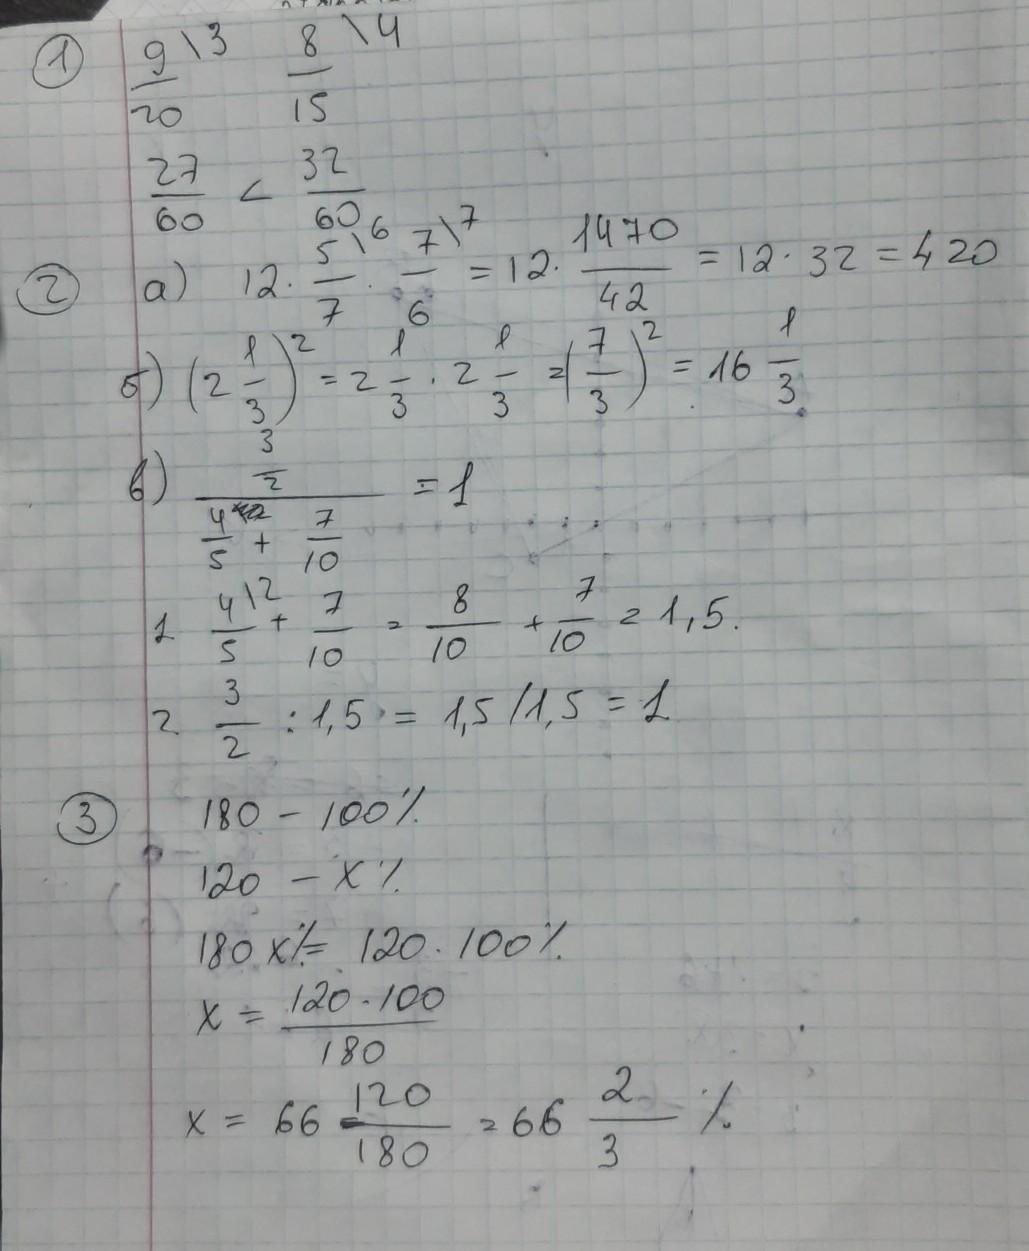 ① 9/20 \3 8/15 \4
27/60 < 32/60
② а) 12 · 5/7 \6 · 7/6 \7 = 12 · 1470/42 = 12 · 32 = 420
б) (2 1/3)² = 2 1/3 · 2 1/3 = (7/3)² = 16 1/3
в) 3/2 / (4/5 + 7/10) = 1
1 4/5 \2 + 7/10 = 8/10 + 7/10 = 1,5.
2. 3/2 : 1,5 = 1,5/1,5 = 1
③ 180 – 100%
120 – x%
180x% = 120 · 100%
x = 120 · 100/180
x = 66 120/180 = 66 2/3 %